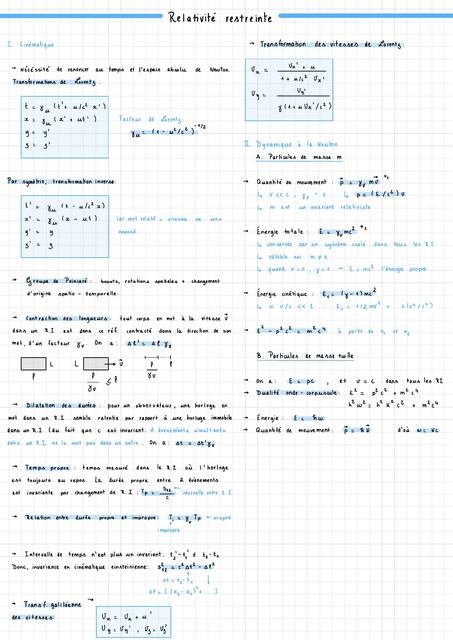 Relativité restreinte
I. Cinématique
→ Nécessité de renoncer au temps et l'espace absolu de Newton.
Transformations de Lorentz:
t = γᵤ (t' + u/c² x')
x = γᵤ (x' + ut')
y = y'
z = z'
Facteur de Lorentz
γᵤ = (1 - u²/c²)^-1/2
Par symétrie, transformation inverse:
t' = γᵤ (t - u/c² x)
x' = γᵤ (x - ut)
y' = y
z' = z
car mot relatif = vitesse de sens
opposé
→ Groupe de Poincaré: boosts, rotations spatiales + changement
d'origine spatio-temporelle.
→ Contraction des longueurs: tout corps en mot à la vitesse v
dans un R.I est dans ce réf. contracté dans la direction de son
mot, d'un facteur On a:
L
→ Dilatation des durées: pour un observateur, une horloge en
mot dans un R.I semble ralentie par rapport à une horloge immobile
dans un R.I (du fait que c est invariant. 2 évènements simultanés
dans un R.I ne le sont pas dans un autre. On a:
→ Temps propre: temps mesuré dans le R.I où l'horloge
est toujours au repos. La durée propre entre 2 évènements
est invariante par changement de R.I: intervalle entre 2 E
→ Relation entre durée propre et impropre propre
impropre
→ Intervalle de temps n'est plus un invariant: t₂' - t₁' ≠ t₂ - t₁
Donc, invariance en cinématique einsteinienne:
Δt = t₂ - t₁
→ Transf. galiléenne
des vitesses:
Vx = Vx' + u
Vy = Vy', Vz = Vz'
→ Transformation des vitesses de Lorentz:
Vx = Vx' + u / 1 + u/c² Vx'
Vy = Vy' / γ(1 + u Vx'/c²)
II. Dynamique à la Newton
A. Particules de masse m
→ Quantité de mouvement: p = γᵥ m v *1
↳ v << c, γᵥ ≈ 1 ↳ p = (E/c²) v
↳ m est un invariant relativiste
→ Énergie totale: E = γᵥ mc² *2
↳ conservée par un système isolé dans tous les R.I
↳ valable si m ≠ 0
↳ quand v = 0, γ = 1 → E = mc² l'énergie propre
→ Énergie cinétique: Ec = (γ - 1) mc²
→ E² - p²c² = m²c⁴ à partir de *1 et *2
B. Particules de masse nulle
→ On a: E = pc, et v = c dans tous les R.I
→ Dualité onde-corpuscule: E² = p²c² + m²c⁴
ħ²w² = ħ²k²c² + m²c⁴
→ Énergie: E = ħw
→ Quantité de mouvement: p = ħk d'où w = kc